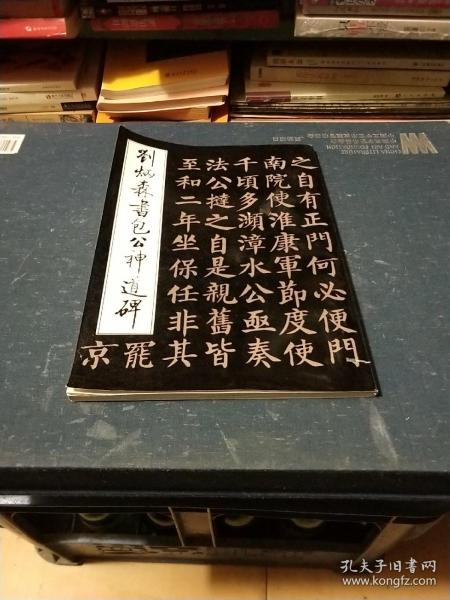 劉炳森書包公神道碑
之自有正門何必便門
南院使淮康軍節度使
千頃多瀕漳水公亟奏
法公撻之自是親舊皆
至和二年坐保任非其
罷
京
CHINA LITERATURE
AND ART FOUNDATION
孔夫子旧书网
www.kongfz.com